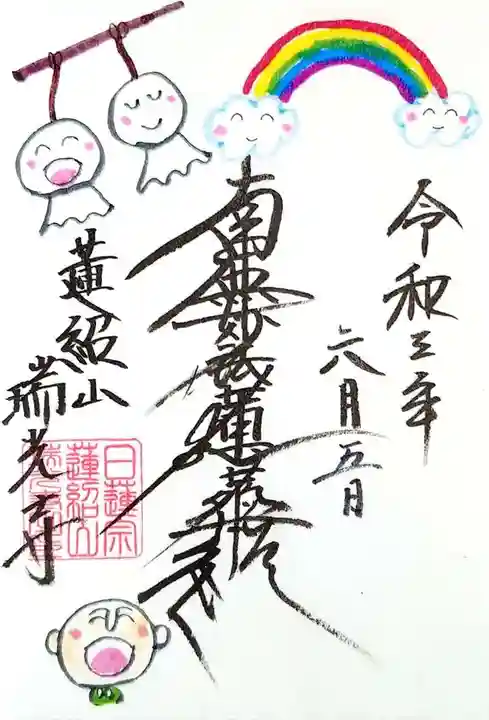 令和三年
六月五日
南無妙法蓮華経
蓮紹山
瑞光寺
日蓮宗
蓮紹山
瑞光寺